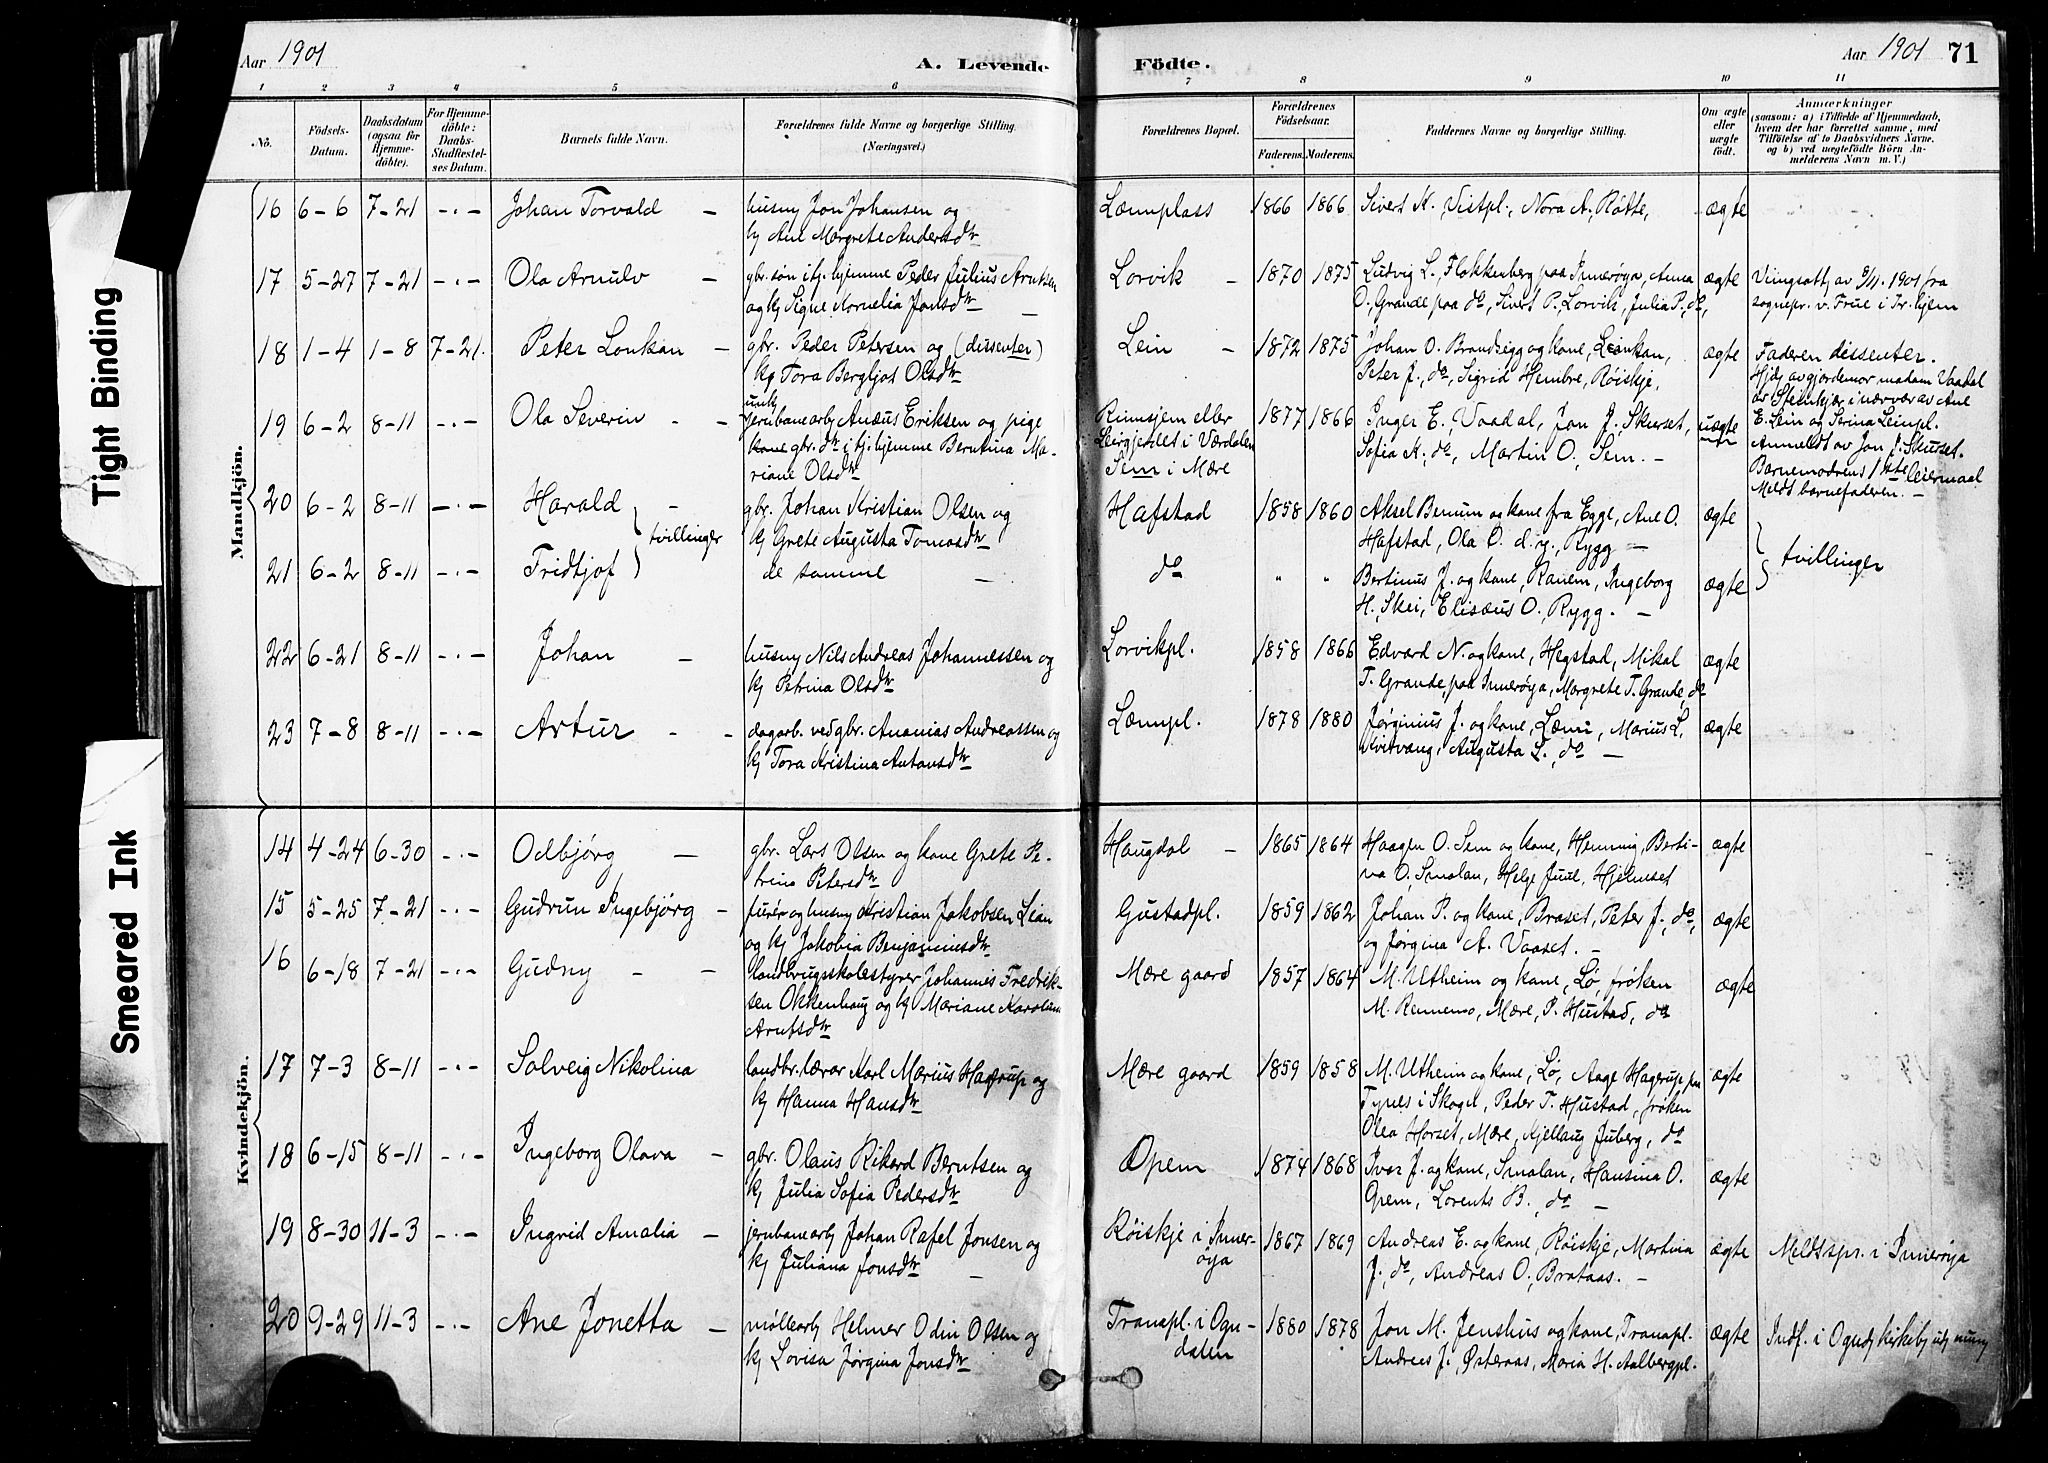 Tight Binding
Smeared Ink
Aar 1901
A. Levende Födte.
Aar 1901 71
1 2 3 4 5 6 7 8 9 10 11
No.
Födsels-Datum.
Daabsdatum (ogsaa for Hjemmedöbte).
For Hjemmedöbte: Daabs-Stadfæstelses Datum.
Barnets fulde Navn.
Forældrenes fulde Navne og borgerlige Stilling. (Næringsvei.)
Forældrenes Bopæl.
Forældrenes Födselsaar.
Faderens. Moderens.
Faddernes Navne og borgerlige Stilling.
Om ægte eller uægte födt.
Anmærkninger
(saasom: a) i Tilfælde af Hjemmedaab, hvem der har forrettet samme, med Tilföielse af to Daabsvidners Navne, og b) ved uægtefödte Börn Anmelderens Navn m. V.)
Mandkjön.
16 6-6 7-21 -·- Johan Torvald - husmd Jon Johansen og
kj Ane Margrete Andersdtr
Læmplass 1866 1866 Sivert K. Vistpl., Nora A. Røtte, ægte
17 5-27 7-21 -·- Ola Arnulv - gbr. søn i tj. hjemme Peder Julius Arntsen
og kj Signe Kornelia Jonsdtr
Lorvik - 1870 1875 Ludvig L. Flokkenberg paa Inderøya, Anna
O. Grande paa do, Sivert P. Lorvik, Julia P., do, ægte
1901 fra
sognepr. v. Frue i Tr.hjem
18 1-4 1-8 7-21. Peter Lonkan - gbr. Peder Petersen og (dissenter)
kj Tora Bergljot Olsdtr
Lein - 1872 1875 Johan O. Brandsegg og kone, Lonkan,
Peter J., do, Sigrid Hembre, Røiskje, ægte
Faderen dissenter.
Hjdp av gjordemor madam Vaadal
av Stenkjer i nærvær av Ane
E. Lein og Serina Leinpl.
19 6-2 8-11 -·- Ola Severin - - unk
jernbanearb Anæus Eriksen og pige
kone gbr. dtr i tj. hjemme Berntina Ma-
riane Olsdtr
Rinnsjem eller
Leirgjerdet i Værdalen
Sem i Mære
1877 1866 Inger E. Vaadal, Jon J. Skurset,
Sofia K., do, Martin O. Sem. - uægte
Anmeldt av Jon J. Skurset.
Barnemodrens 1ste leiermaal
Meldt barnefaderen. -
20 6-2 8-11 -·- Harald - gbr. Johan Kristian Olsen og
kj Grete Augusta Tomasdtr
Hafstad 1858 1860 Aksel Benum og kone fra Egge, Ane O.
Hafstad, Ola O. d.y., Rygg - ægte
tvillinger
21 6-2 8-11 -·- Fridtjof de samme -
do " " Bertinus J. og kone, Ranem, Ingeborg
H. Skei, Elisæus O. Rygg. - ægte
tvillinger
22 6-21 8-11 -·- Johan - husmd Nils Andreas Johannessen og
kj Petrina Olsdtr
Lorvikpl. 1858 1866 Edvard N. og kone, Hegstad, Mikal
T. Grande, paa Inderøya, Margrete T. Grande, do ægte
23 7-8 8-11 -·- Artur - - dagarb. ved gbr. Ananias Andreassen og
kj Tora Kristina Antonsdtr
Læmpl. 1878 1880 Jørginius J. og kone, Læm, Marius L.
Kvitvang, Augusta L., do - ægte
Kvindekjön.
14 4-24 6-30 -·- Odbjørg - gbr. Lars Olsen og kone Grete Pe-
trina Petersdtr
Haugdal - 1865 1864 Haagen O. Sem og kone, Henning, Berti-
na O. Smalan, Helge Juul, Hjelmset ægte
15 5-25 7-21 -·- Gudrun Ingebjørg - furér og husmd Kristian Jakobsen Lian
og kj Jakobia Benjaminsdtr
Gustadpl. 1859 1862 Johan P. og kone, Braset, Peter J., do,
og Jørgina A. Vaaset. - ægte
16 6-18 7-21 -·- Gudny - - landbrugsskolestyrer Johannes Fredrik-
sen Okkenhaug og kj Mariane Karolina
Arntsdtr
Mære gaard 1857 1864 M. Utheim og kone, Lø, frøken
M. Rennemo, Mære, P. Hustad, do ægte
17 7-3 8-11 -·- Solveig Nikolina landbr.lærer Karl Marius Hagerup og
kj Hanna Hansdtr
Mære gaard 1859 1858 M. Utheim og kone, Lø, Aage Hagerup paa
Tynes i Skogn, Peder T. Hustad, frøken
Olea Horset, Mære, Kjellaug Juberg, do ægte
18 6-15 8-11 -·- Ingeborg Olava - gbr. Olaus Rikard Berntsen og
kj Julia Sofia Pedersdtr
Opem 1874 1868 Ivar J. og kone, Smalan, Hansina O.
Opem, Lorents B., do - ægte
19 8-30 11-3 -·- Ingrid Amalia - jernbanearb Johan Rafel Jonsen og
kj Juliana Jonsdtr -
Røiskje i Inder-
øya 1867 1869 Andreas E. og kone, Røiskje, Martina
J., do, Andreas O. Brataas. - ægte Meldt spr. i Inderøya
20 9-29 11-3 -·- Ane Jonetta - møllearb Helmer Odin Olsen og
kj Lovisa Jørgina Jonsdtr
Tranapl. i Ogn-
dalen 1880 1878 Jon M. Jenshus og kone, Tranapl.
Andreas J. Østeraas, Maria H. Aalbergpl. ægte Indf. i Ognd kirkeb